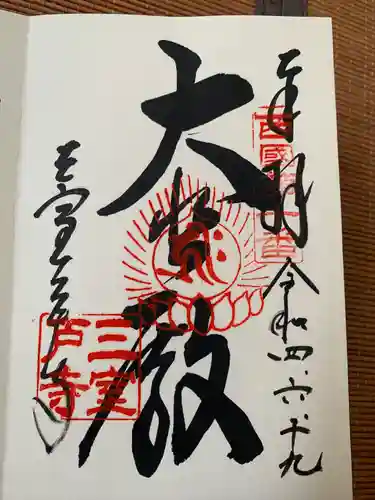 奉拝
令和四、六、十九
西国第十番
大悲殿
三室戸寺
三室戸寺